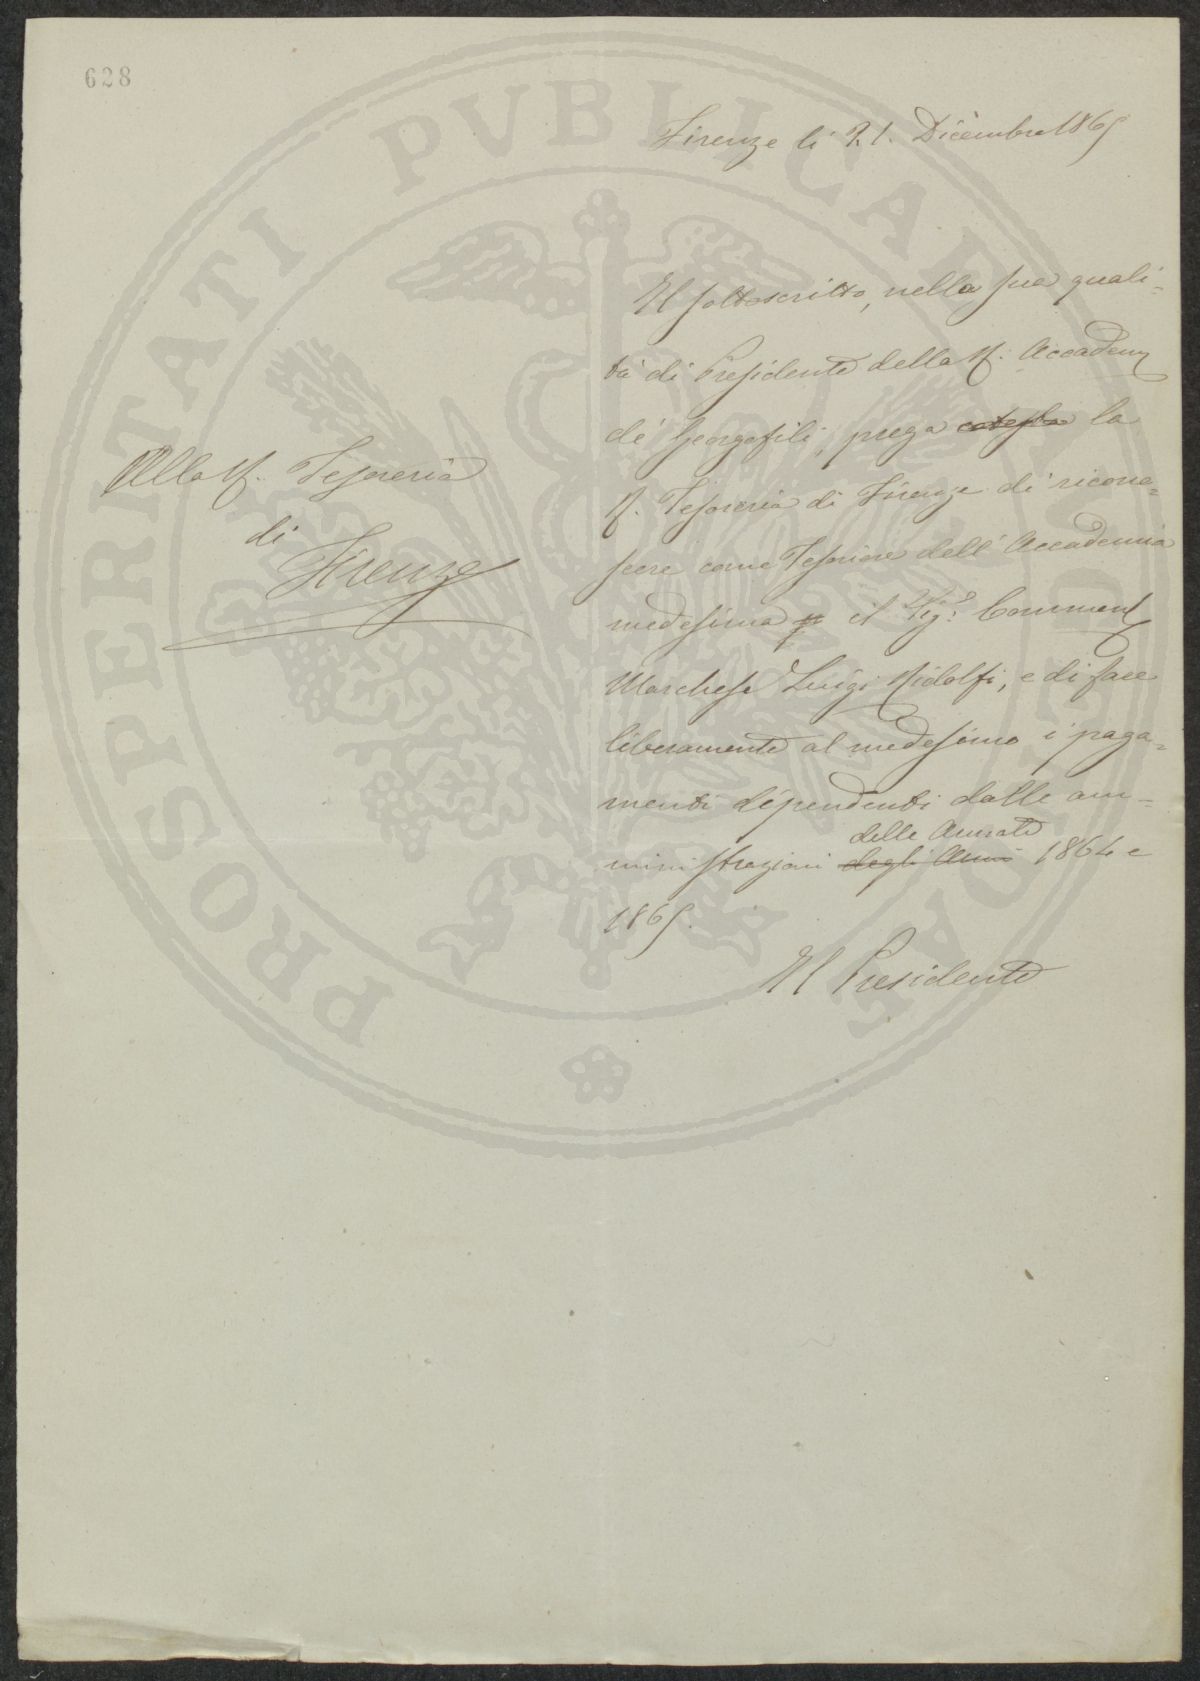 628
PROSPERITATI PVBLICAE AVGENDAE
Firenze li 21. Dicembre 1865
Il sottoscritto, nella sua quali-
tà di Presidente della R. Accadem
de' Georgofili, prega cotesta la
R. Tesoreria di Firenze di ricono-
scere come Tesoriere dell'Accademia
medesima il Sig. Comment
Marchese Luigi Ridolfi, e di fare
liberamente al medesimo i paga-
menti dependenti dalle am-
delle Annate
ministrazioni degli Anni 1864 e
1865.
Il Presidente
Alla R. Tesoreria
di
Firenze